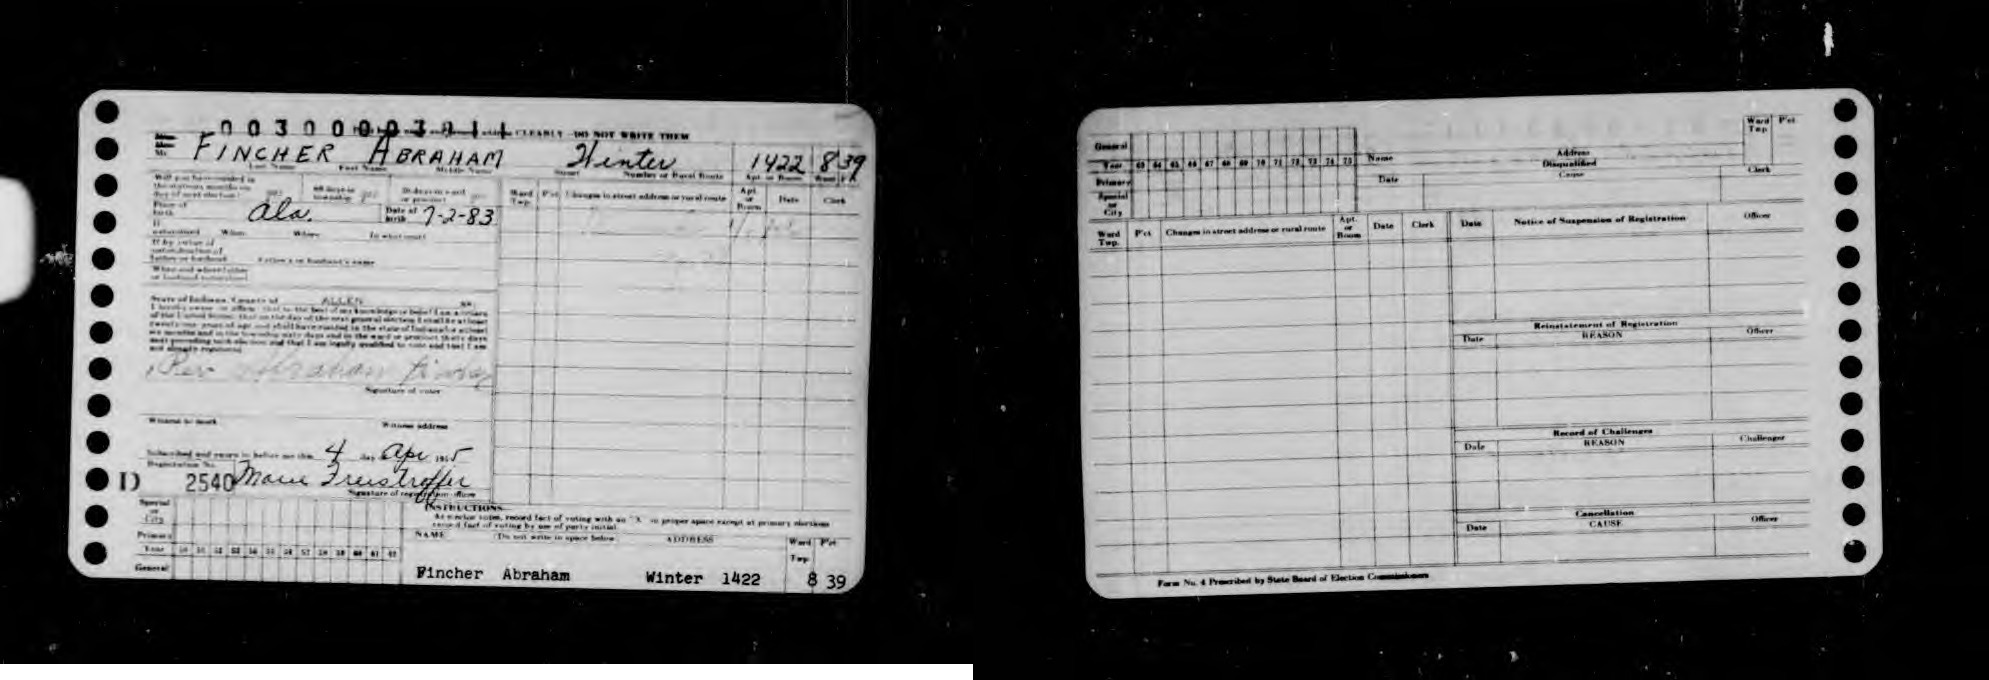 CLEARLY - DO NOT WRITE THEM
FINCHER ABRAHAM Winter 1422 8 39
Last Name First Name Middle Name Street Number or Rural Route Apt. or Room
Place of birth Ala. Date of birth 7-2-83
Ward Twp. P'ct Changes in street address or rural route Apt. or Room Date Clerk
If naturalized When Where In what court
Father's or husband's name
State of Indiana, County of ALLEN ss:
I hereby swear or affirm that to the best of my knowledge or belief I am a citizen
of the United States, that on the day of the next general election I shall be at least
twenty-one years of age and shall have resided in the state of Indiana for at least
six months and in the township sixty days and in the ward or precinct thirty days
next preceding such election and that I am legally qualified to vote and that I am
not already registered
Rev Abraham
Signature of voter
Witness to mark Witness address
Subscribed and sworn to before me this 4 day Apr 1955
Registration No.
D 2540 Marie Freistroffer
Signature of registration officer
INSTRUCTIONS
As a voter votes, record fact of voting with an "X" in proper space except at primary elections
record fact of voting by use of party initial
Special or City
Primary
Year 50 51 52 53 54 55 56 57 58 59 60 61 62
General
NAME (Do not write in space below) ADDRESS Ward Twp. P'ct
Fincher Abraham Winter 1422 8 39
General
Year 63 64 65 66 67 68 69 70 71 72 73 74 75
Primary
Special or City
Name Address Ward Twp. P'ct
Disqualified
Date Cause Clerk
Ward Twp. P'ct Changes in street address or rural route Apt. or Room Date Clerk
Date Notice of Suspension of Registration Officer
Reinstatement of Registration
Date REASON Officer
Record of Challenges
Date REASON Challenger
Cancellation
Date CAUSE Officer
Form No. 4 Prescribed by State Board of Election Commissioners